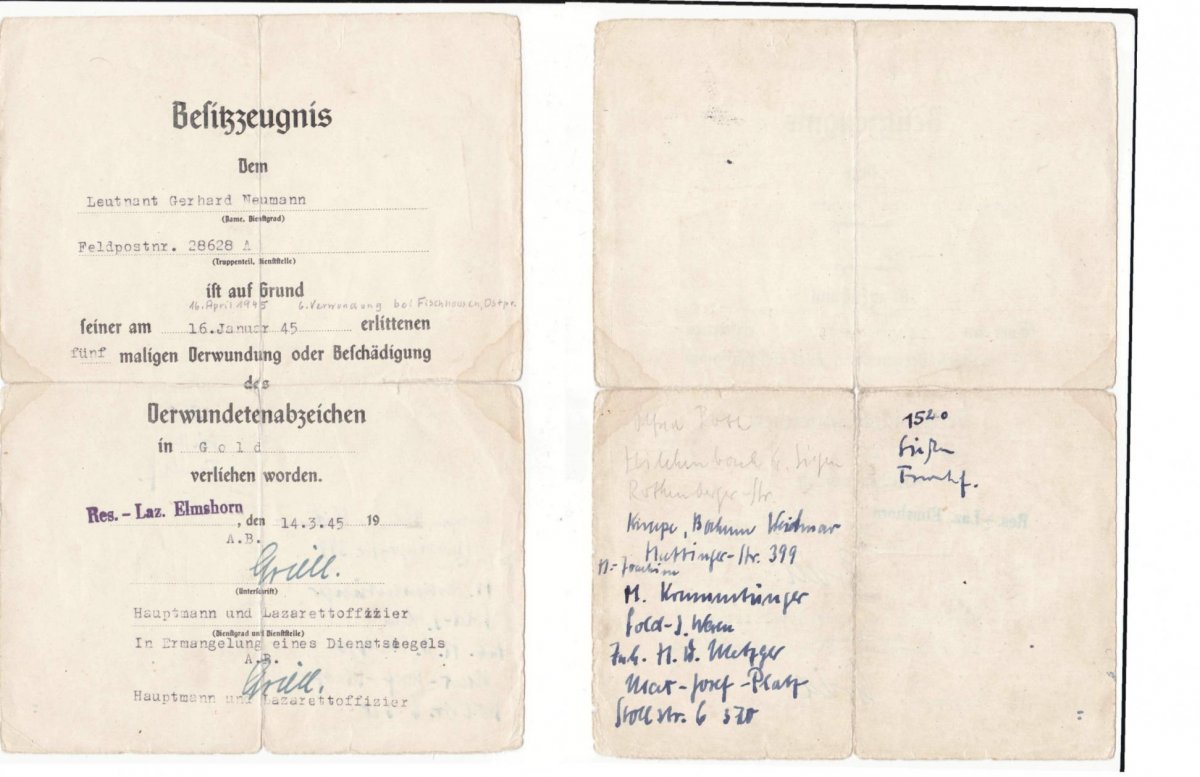 Besitzzeugnis
Dem
Leutnant Gerhard Neumann
(Name, Dienstgrad)
Feldpostnr. 28628 A
(Truppenteil, Dienststelle)
ist auf Grund
16. April 1945 6. Verwundung bei Fischhausen, Ostpr.
seiner am 16.Januar 45 erlittenen
fünf maligen Verwundung oder Beschädigung
des
Verwundetenabzeichen
in Gold
verliehen worden.
Res. - Laz. Elmshorn, den 14.3.45 19
A.B.
Grill.
(Unterschrift)
Hauptmann und Lazarettoffizier
(Dienstgrad und Dienststelle)
In Ermangelung eines Dienstsiegels
A.B.
Grill.
Hauptmann und Lazarettoffizier
Hilchenbach Siegen
Rothenberger-str.
Bochum Weitmar
Hattinger-str. 399
H.-Joachim
M.
Gold-
Inh. H. D. Metzger
Max-Josef-Platz
Stollstr. 6
15²⁰